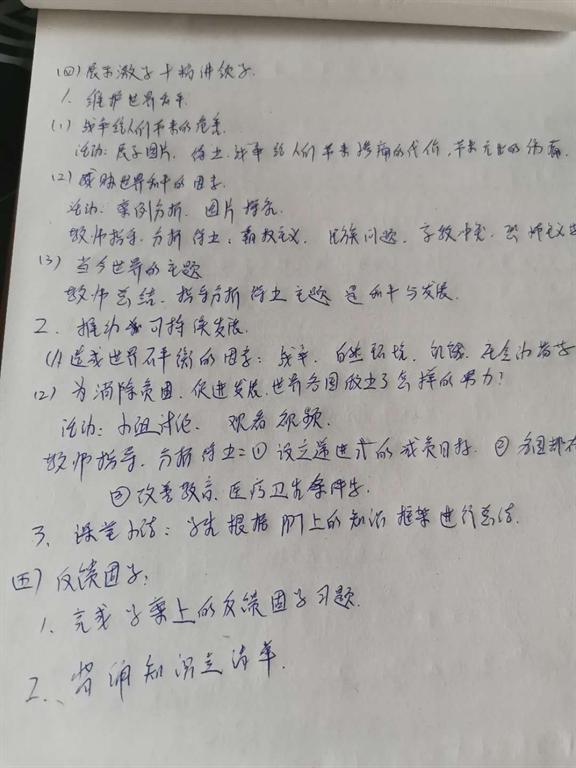 (四)展示激子+精讲领子.
1. 维护世界和平.
(1) 战争给人们带来的危害.
活动: 展示图片. 得出: 战争给人们带来惨痛的代价,带来无尽的伤痛
(2) 威胁世界和平的因素.
活动: 案例分析. 图片探究.
教师指导. 分析得出: 霸权主义. 民族问题. 宗教冲突. 恐怖主义
(3) 当今世界的主题
教师总结. 指导分析得出主题是和平与发展.
2. 推动可持续发展.
(1) 造成世界不平衡的因素: 战争. 自然环境. 饥饿. 社会
(2) 为消除贫困. 促进发展. 世界各国做出了怎样的努力?
活动: 小组讨论. 观看视频.
教师指导. 分析得出: ① 设定递进式的减贫目标. ② 各国都在
③ 改善教育. 医疗卫生条件等.
3. 课堂小结: 学生根据PPT上的知识框架进行总结.
(五) 反馈因子:
1. 完成学案上的反馈因子习题.
2. 背诵知识点清单.